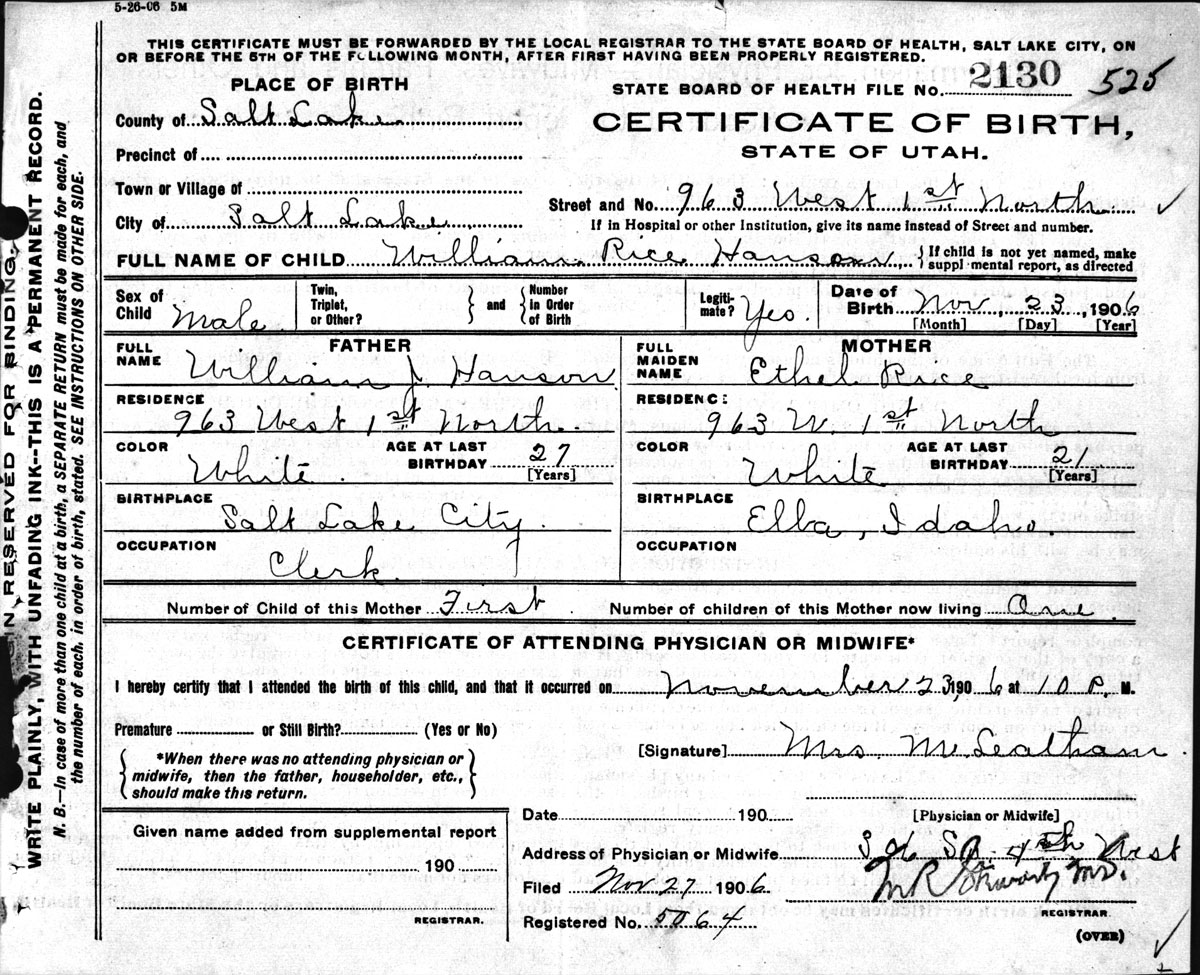 5-26-06 5M
THIS CERTIFICATE MUST BE FORWARDED BY THE LOCAL REGISTRAR TO THE STATE BOARD OF HEALTH, SALT LAKE CITY, ON
OR BEFORE THE 5TH OF THE FOLLOWING MONTH, AFTER FIRST HAVING BEEN PROPERLY REGISTERED.
PLACE OF BIRTH
STATE BOARD OF HEALTH FILE No. 2130 525
County of Salt Lake
CERTIFICATE OF BIRTH,
STATE OF UTAH.
Precinct of
Town or Village of
Street and No. 963 West 1st North
City of Salt Lake
If in Hospital or other Institution, give its name instead of Street and number.
FULL NAME OF CHILD William Rice Hanson { If child is not yet named, make
suppl mental report, as directed
Sex of Child Male
Twin, Triplet, or Other? } and { Number in Order of Birth
Legiti-mate? Yes
Date of Birth Nov, 23, 1906
[Month] [Day] [Year]
FATHER
FULL NAME William J. Hanson
RESIDENCE 963 West 1st North
COLOR White AGE AT LAST BIRTHDAY 27 [Years]
BIRTHPLACE Salt Lake City.
OCCUPATION Clerk.
MOTHER
FULL MAIDEN NAME Ethel Rice
RESIDENC: 963 W. 1st North
COLOR White AGE AT LAST BIRTHDAY 21 [Years]
BIRTHPLACE Elba, Idaho
OCCUPATION
Number of Child of this Mother First Number of children of this Mother now living One
CERTIFICATE OF ATTENDING PHYSICIAN OR MIDWIFE*
I hereby certify that I attended the birth of this child, and that it occurred on November 23, 1906 at 10 P. M.
Premature or Still Birth? (Yes or No)
[Signature] Mrs.
{ *When there was no attending physician or
midwife, then the father, householder, etc.,
should make this return. }
Date 190
[Physician or Midwife]
Given name added from supplemental report
190
REGISTRAR.
Address of Physician or Midwife 4th West
Filed Nov 27 1906
M.D.
REGISTRAR.
Registered No. 5064
(OVER)
IN RESERVED FOR BINDING.
WRITE PLAINLY, WITH UNFADING INK--THIS IS A PERMANENT RECORD.
N. B.—In case of more than one child at a birth, a SEPARATE RETURN must be made for each, and
the number of each, in order of birth, stated. SEE INSTRUCTIONS ON OTHER SIDE.